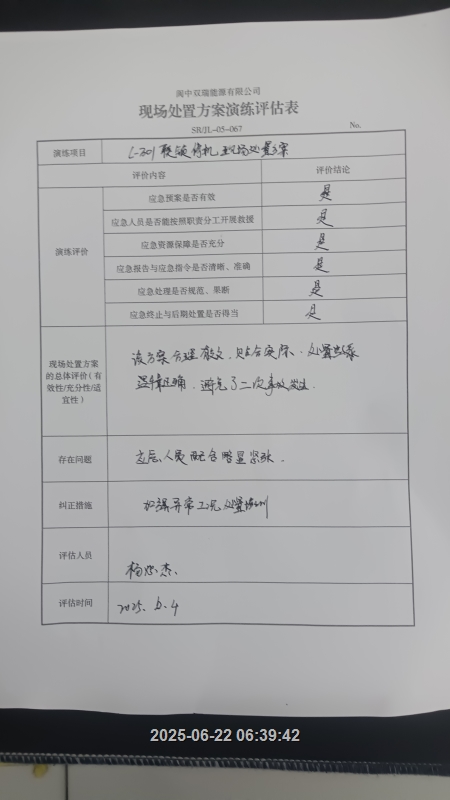 阆中双瑞能源有限公司
现场处置方案演练评估表
SR/JL-05-067 No.
演练项目 C-301联锁停机现场处置方案
评价内容 评价结论
演练评价
应急预案是否有效 是
应急人员是否能按照职责分工开展救援 是
应急资源保障是否充分 是
应急报告与应急指令是否清晰、准确 是
应急处理是否规范、果断 是
应急终止与后期处置是否得当 是
现场处置方案的总体评价（有效性/充分性/适宜性）
该方案合理有效，贴合实际，处置
正确，避免了二次事故发生.
存在问题 应急人员配合略显紧张.
纠正措施 加强异常工况处置培训
评估人员 杨 杰.
评估时间 2025. 6. 4
2025-06-22 06:39:42